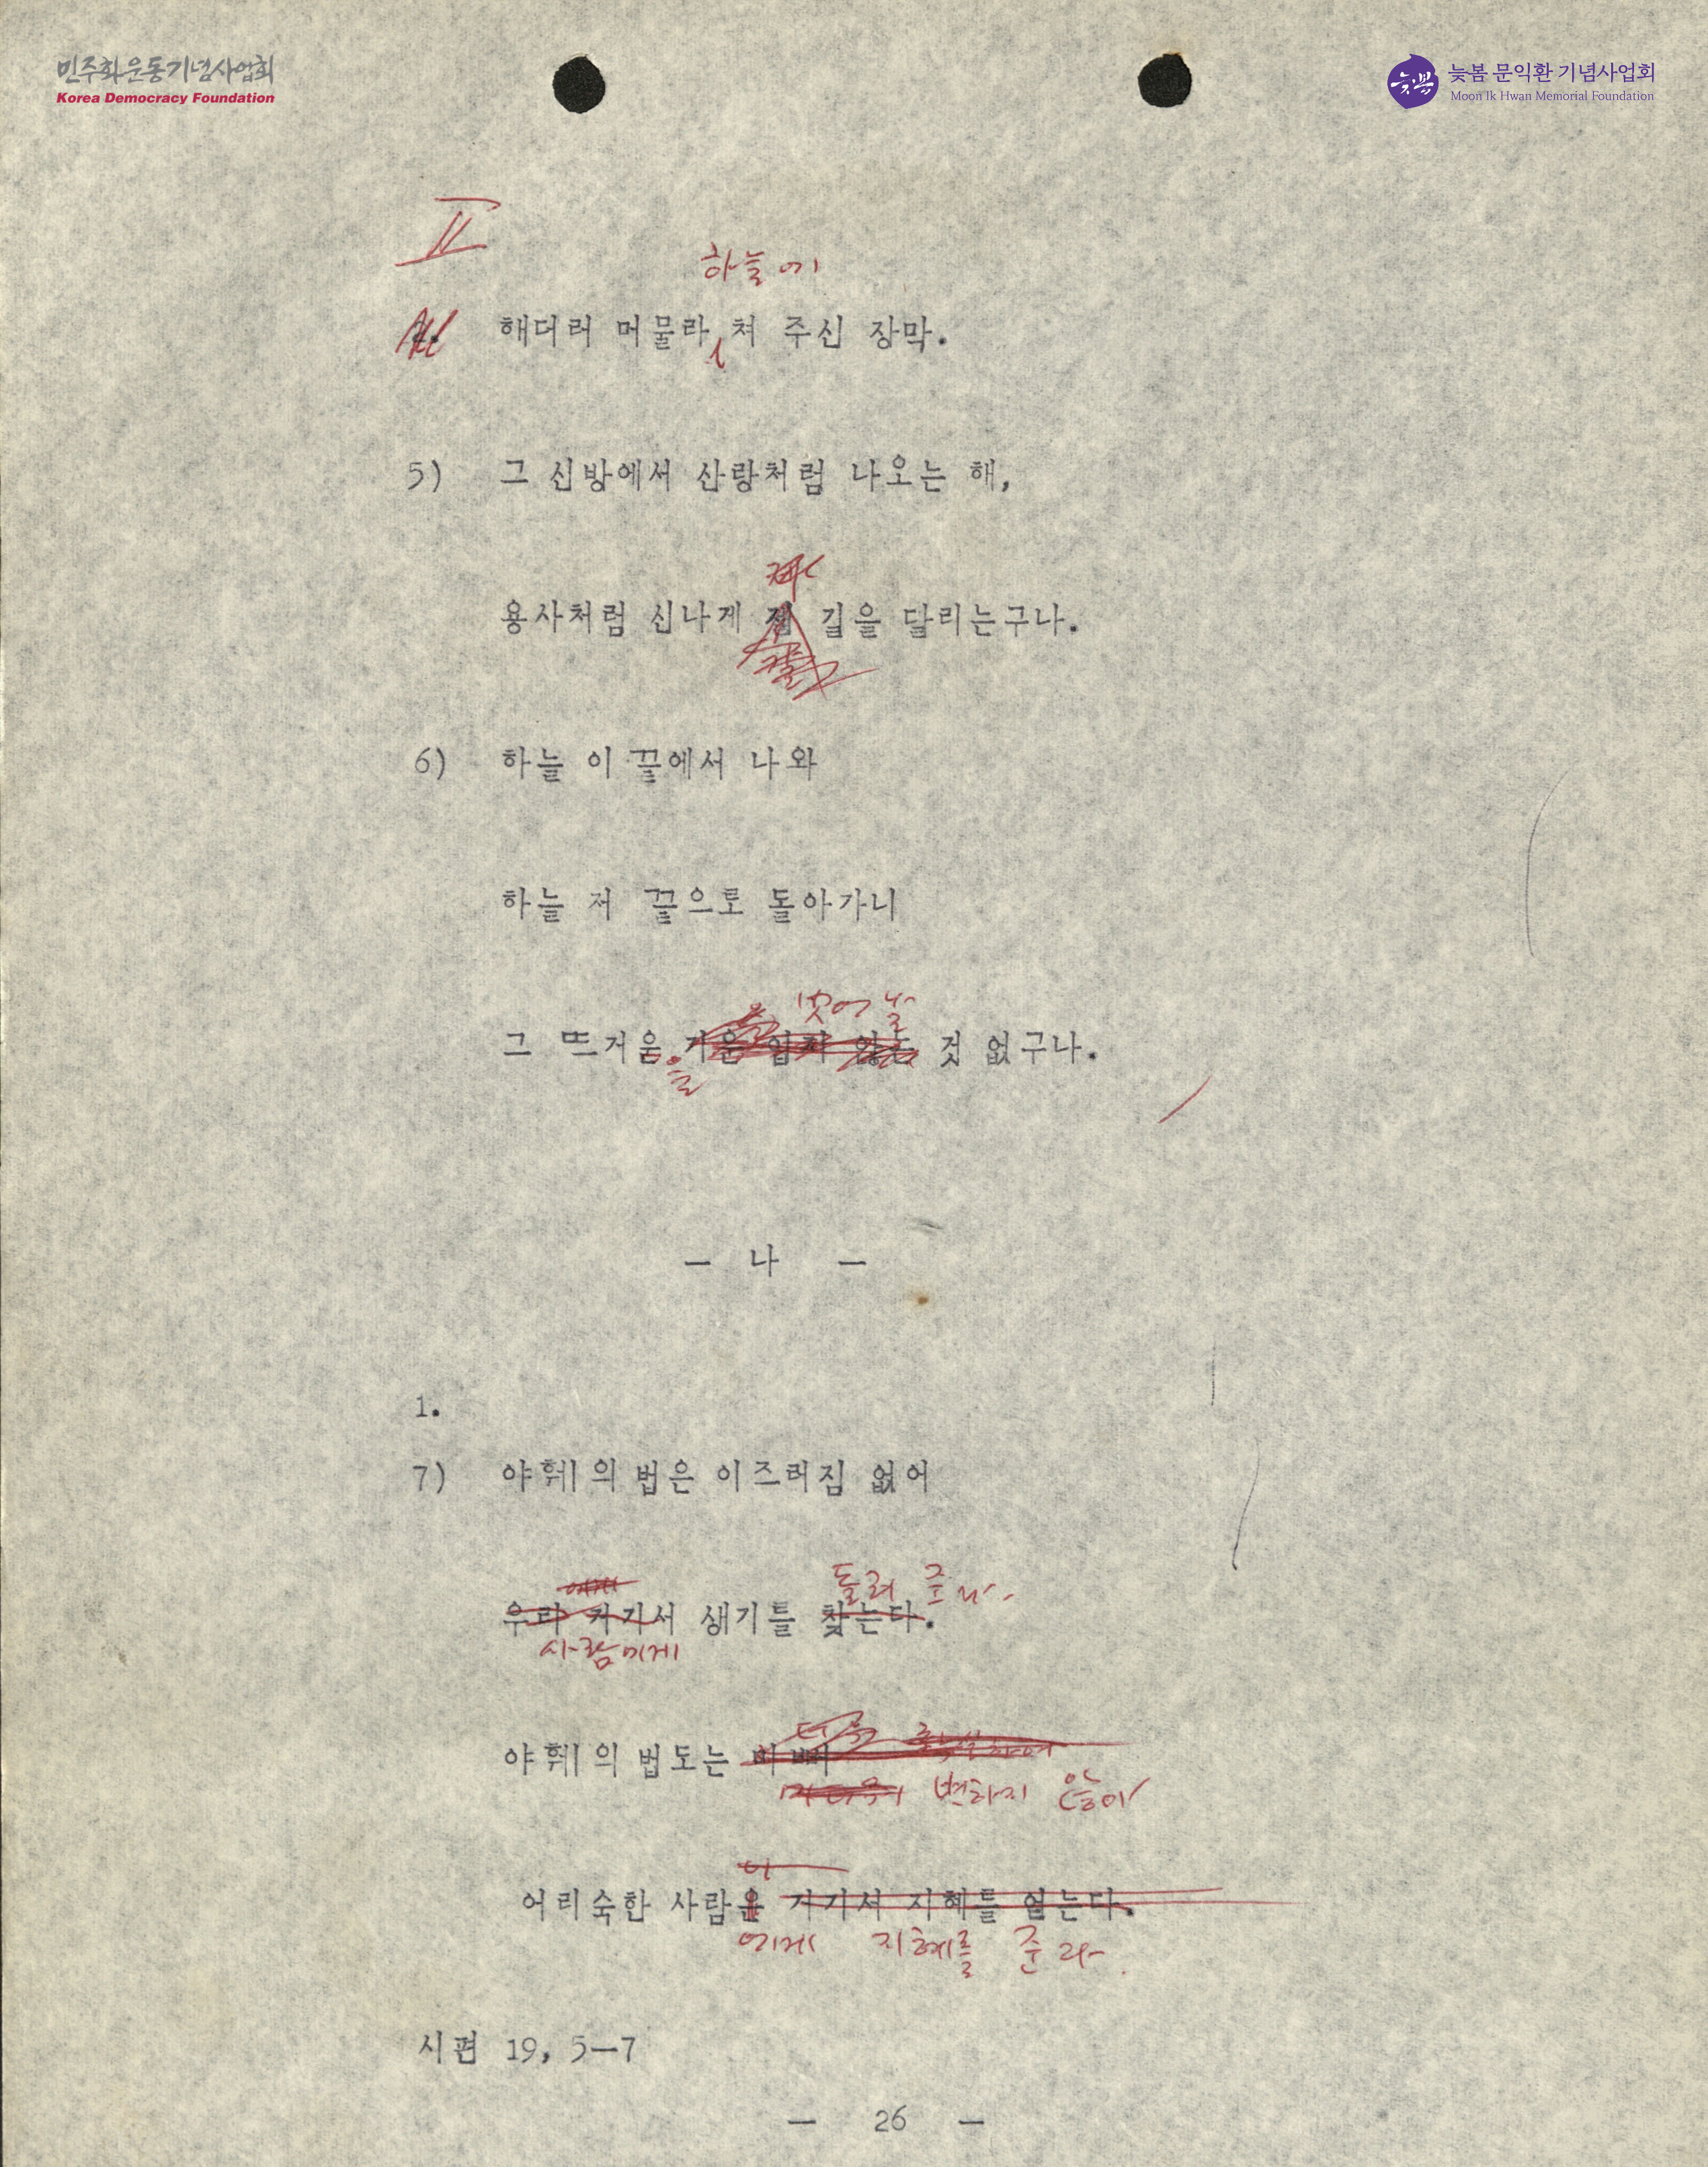 민주화운동기념사업회
Korea Democracy Foundation
늦봄
늦봄 문익환 기념사업회
Moon Ik Hwan Memorial Foundation
II
하늘에
2. 해더러 머물라 쳐 주신 장막.
5) 그 신방에서 산랑처럼 나오는 해,
용사처럼 신나게 길을 달리는구나.
6) 하늘 이 끝에서 나와
하늘 저 끝으로 돌아가니
벗어날
그 뜨거움 기운 입지 않는 것 없구나.
을
— 나 —
1.
7) 야훼의 법은 이즈러짐 없어
에게 돌려 준다.
우리 거기서 생기를 찾는다.
사람에게
야훼의 법도는 미뻐
변하지 않아
이
어리숙한 사람은 거기서 지혜를 얻는다.
에게 지혜를 준다.
시편 19, 5—7
— 26 —